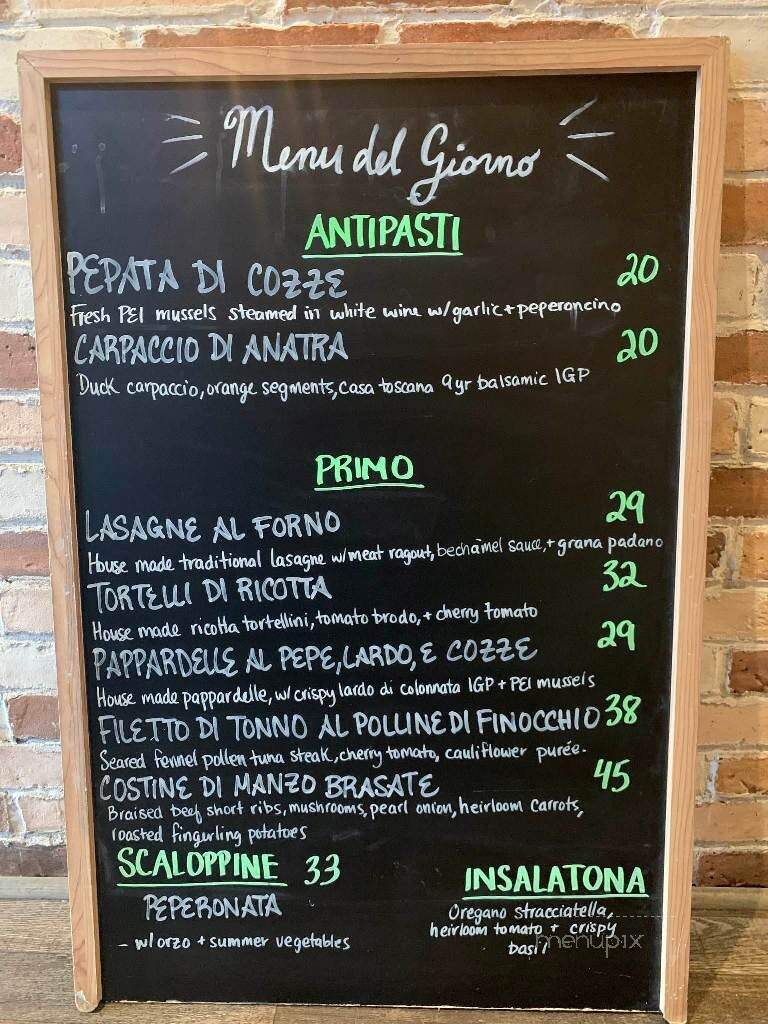 Menu del Giorno
ANTIPASTI
PEPATA DI COZZE 20
Fresh PEI mussels steamed in white wine w/garlic + peperoncino
CARPACCIO DI ANATRA 20
Duck carpaccio, orange segments, casa toscana 9yr balsamic IGP
PRIMO
LASAGNE AL FORNO 29
House made traditional lasagne w/meat ragout, bechamel sauce, + grana padano
TORTELLI DI RICOTTA 32
House made ricotta tortellini, tomato brodo, + cherry tomato
PAPPARDELLE AL PEPE, LARDO, E COZZE 29
House made pappardelle, w/ crispy lardo di colonnata IGP + PEI mussels
FILETTO DI TONNO AL POLLINE DI FINOCCHIO 38
Seared fennel pollen tuna steak, cherry tomato, cauliflower purée.
COSTINE DI MANZO BRASATE 45
Braised beef short ribs, mushrooms, pearl onion, heirloom carrots,
roasted fingurling potatoes
SCALOPPINE 33
PEPERONATA
- w/ orzo + summer vegetables
INSALATONA
Oregano stracciatella,
heirloom tomato + crispy
basil
menupix